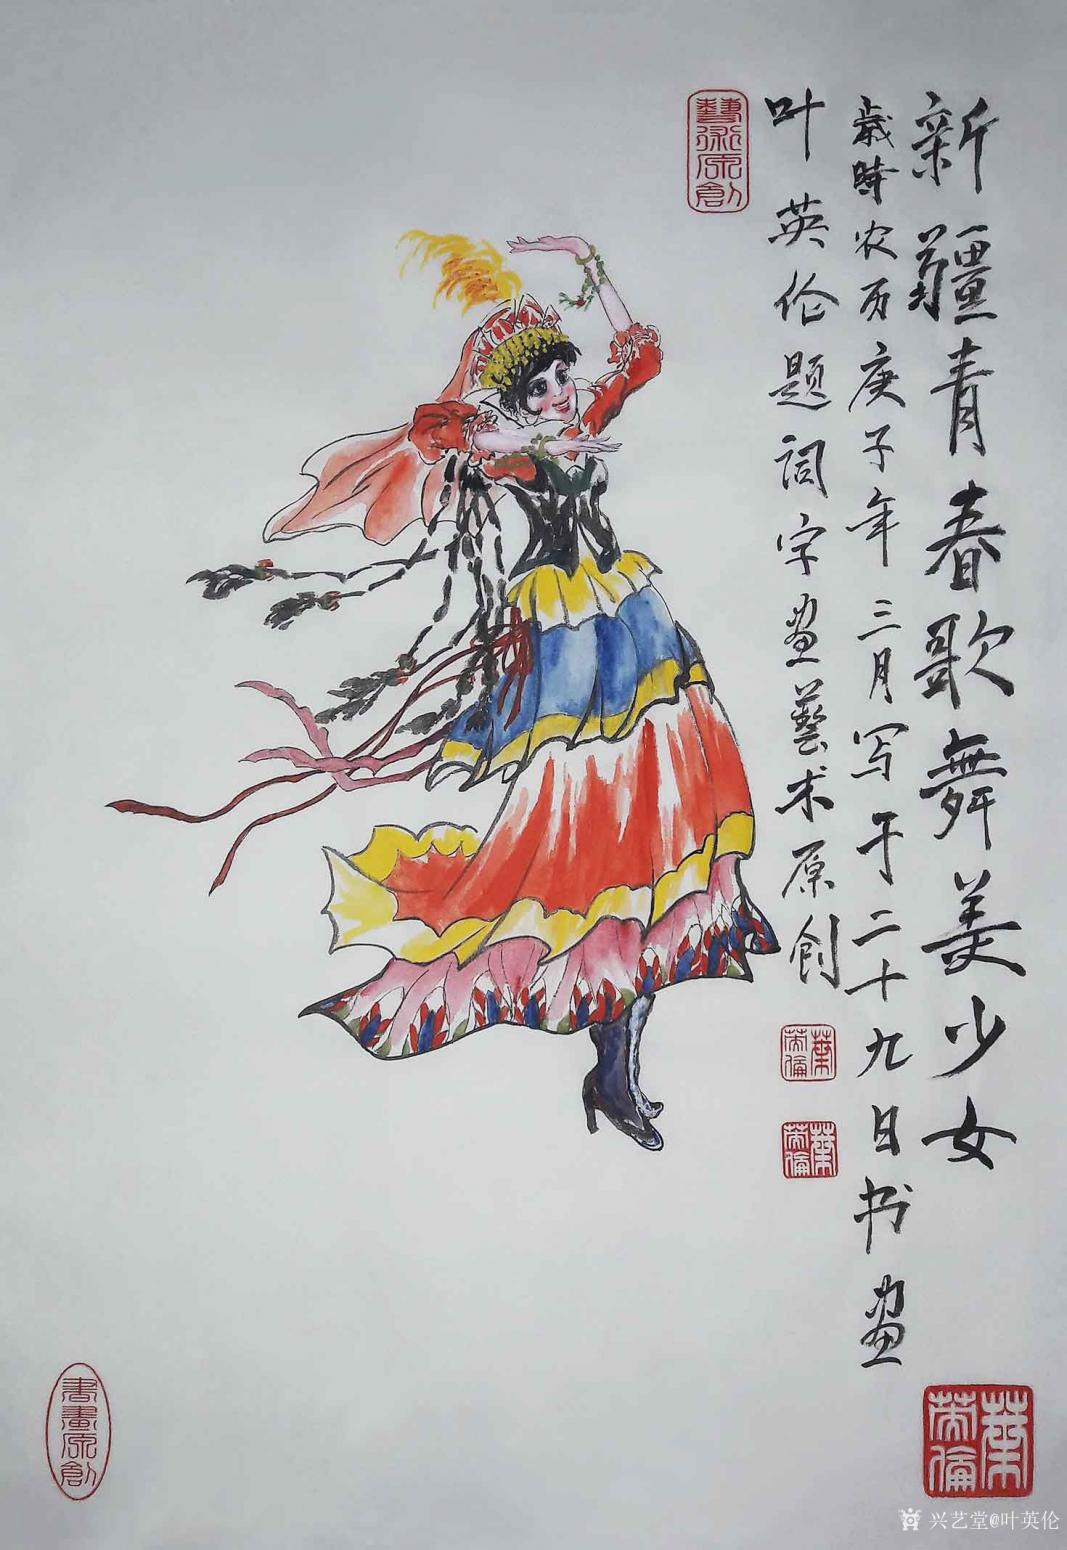 新疆青春歌舞美少女
歲時农历庚子年三月写于二十九日书画
叶英伦题词字画藝术原创
藝術原創
葉英倫
葉英倫
葉英倫
書畫原創
兴艺堂@叶英伦